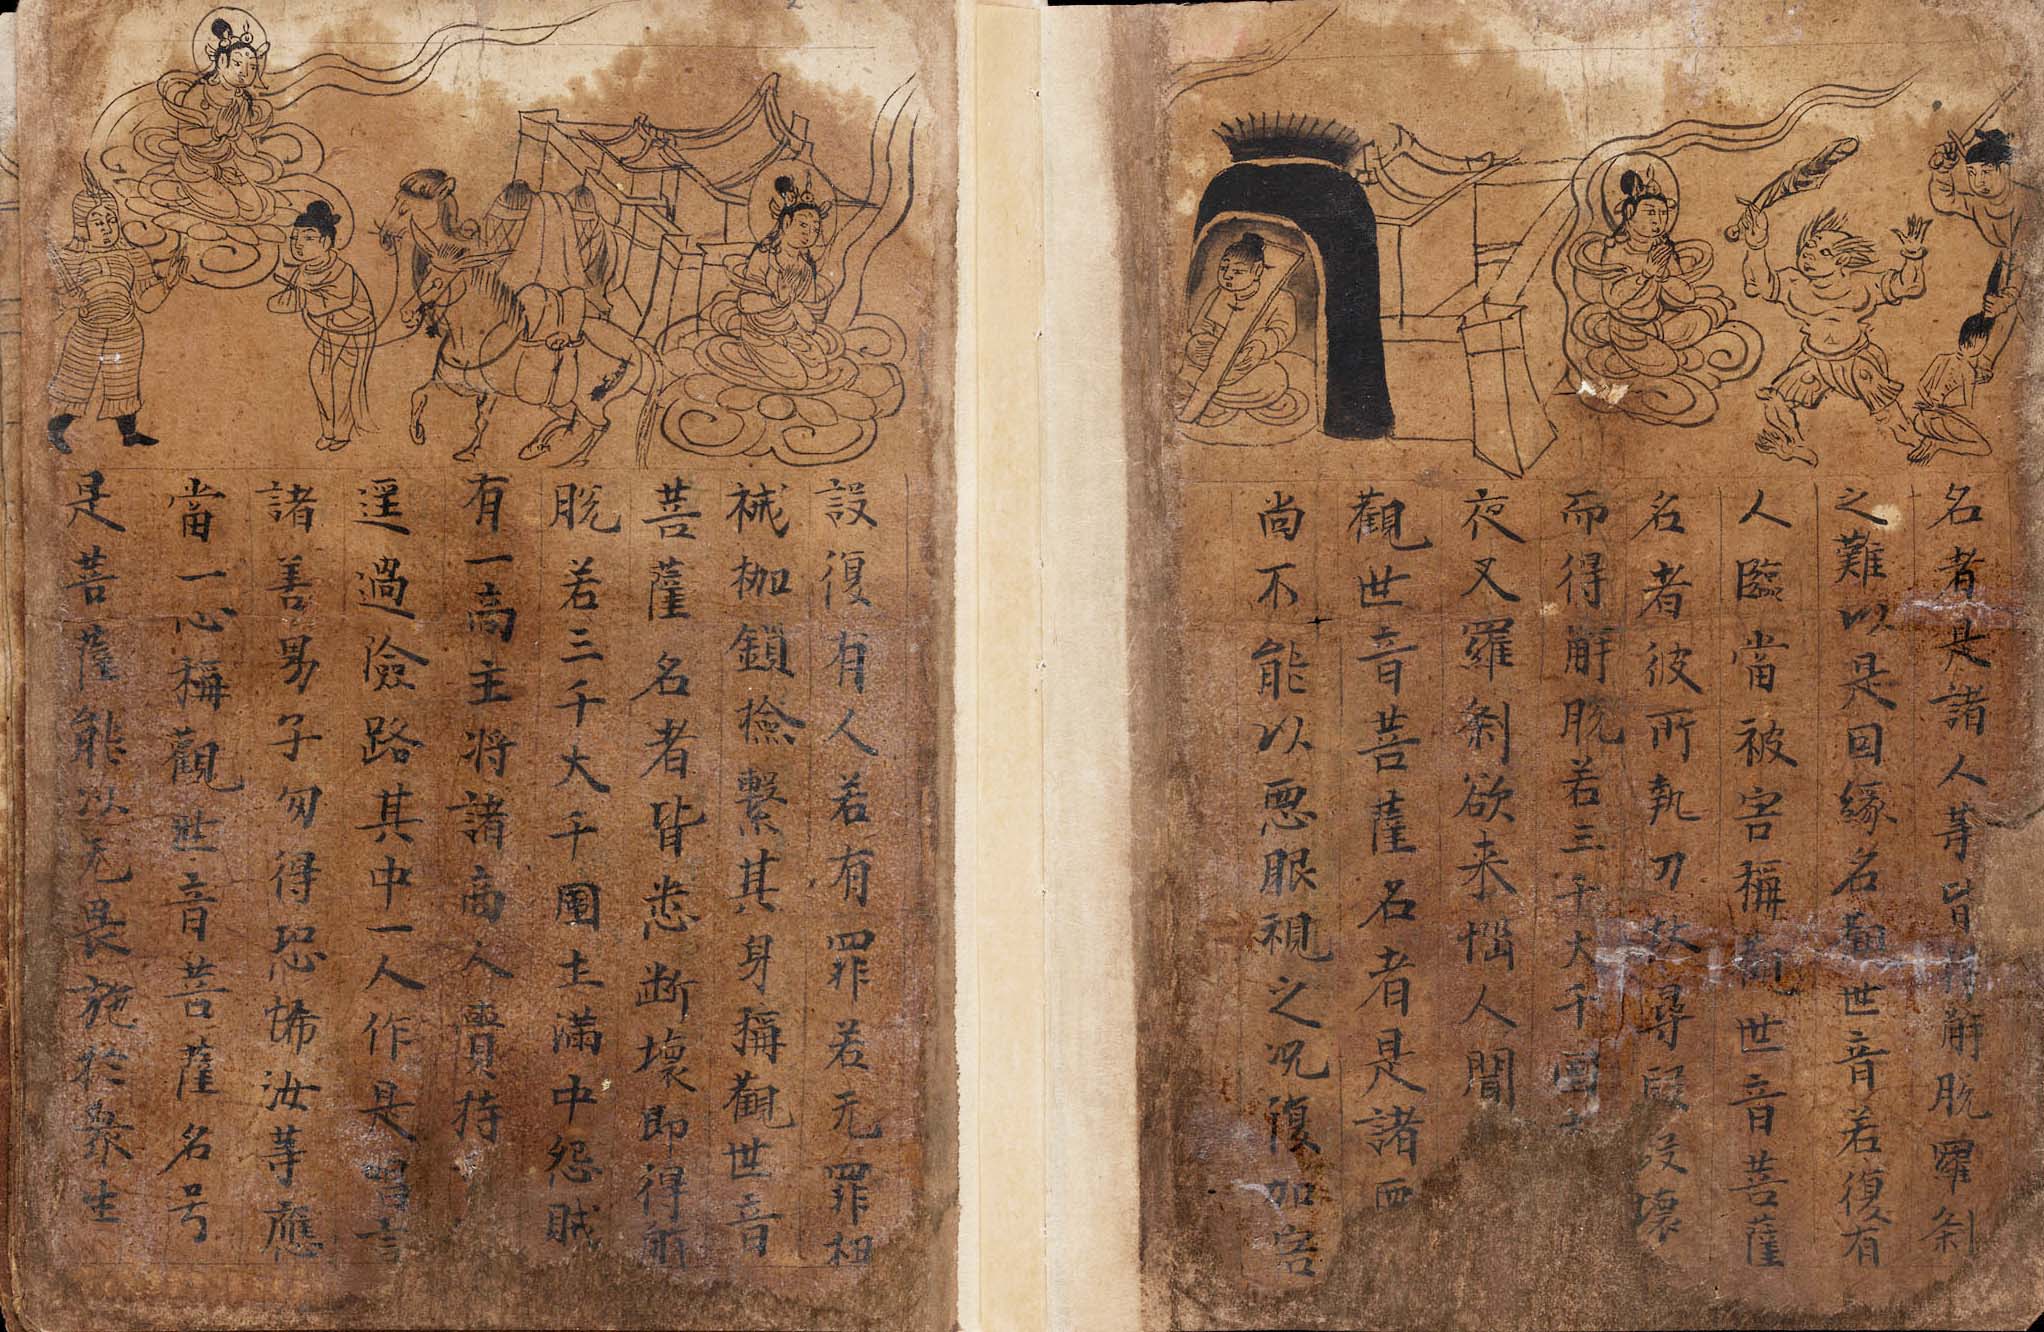 名者是諸人等皆得解脱羅刹
之難以是因緣名觀世音若復有
人臨當被害稱觀世音菩薩
名者彼所執刀杖尋段段壞
而得解脱若三千大千國土
夜叉羅刹欲来惱人聞
觀世音菩薩名者是諸
尚不能以惡眼視之况復加害
設復有人若有罪若无罪杻
械枷鎖檢繫其身稱觀世音
菩薩名者皆悉断壞即得解
脱若三千大千國土滿中怨賊
有一商主将諸商人賷持
逕過險路其中一人作是唱言
諸善男子勿得恐怖汝等應
當一心稱觀世音菩薩名号
是菩薩能以无畏施於衆生